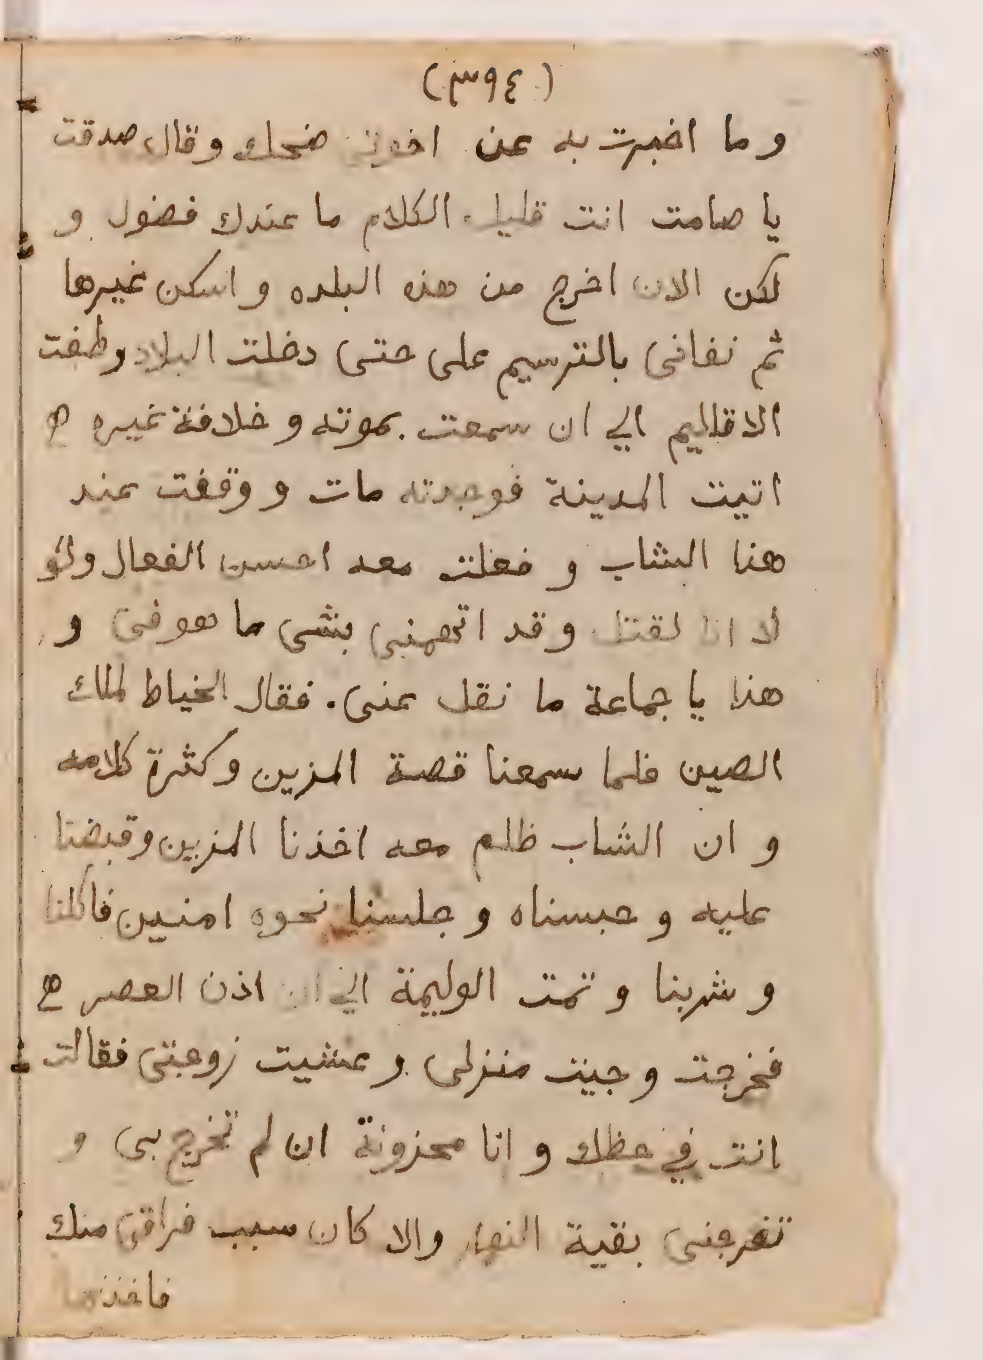 (٣٩٤)
وما اخبرت به عن اخوتي ضحك وقال صدقت
يا صامت انت قليل الكلام ما عندك فضول و
لكن الان اخرج من هذه البلده واسكن غيرها
ثم نفاني بالترسيم على حتى دخلت البلاد وطفت
الاقاليم الي ان سمعت بموته وخلافة غيره
اتيت المدينة فوجدته مات ووقفت عند
هذا الشاب وفعلت معه احسن الفعال ولو
لا انا لقتل وقد اتهمني بشي ما هو في و
هذا يا جماعة ما نقل عني. فقال الخياط لملك
الصين فلما سمعنا قصة المزين وكثرة كلامه
وان الشاب ظلم معه اخذنا المزين وقبضنا
عليه وحبسناه وجلسنا نحوه امنين فاكلنا
وشربنا وتمت الوليمة الي ان اذن العصر
فخرجت وجيت منزلي وعشيت زوجتي فقالت
انت في حظك وانا محزونة ان لم تخرج بي و
تفرجني بقية النهار والا كان سبب فراقي منك
فاخذتها